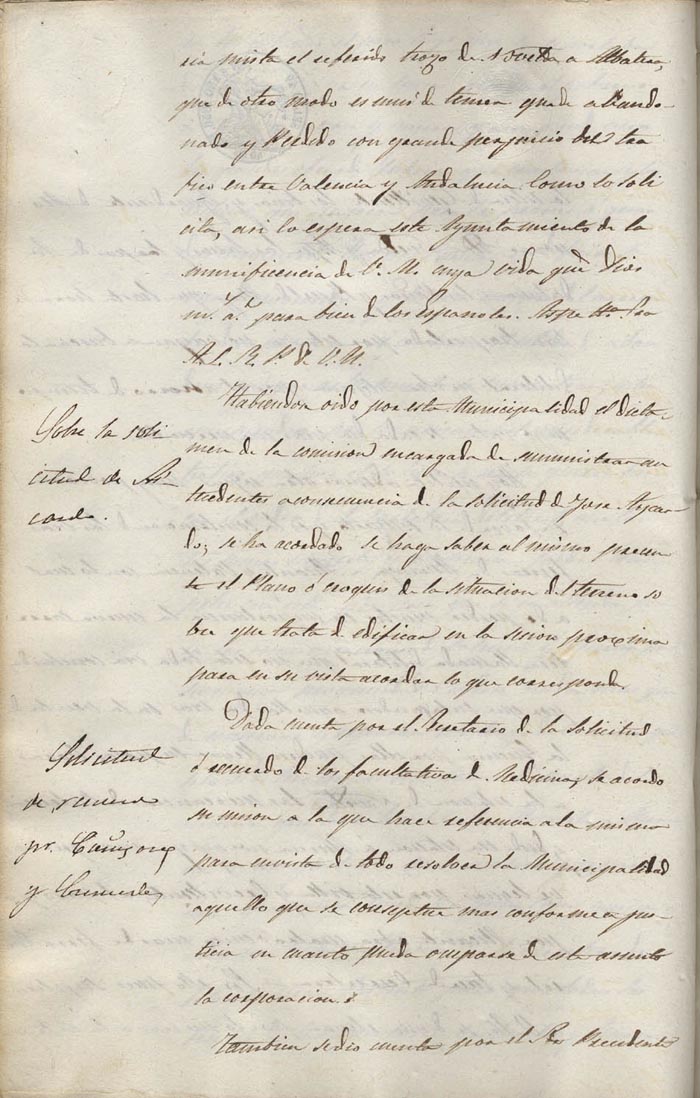 ria mista el referido trozo de Novelda a Albatera,
que de otro modo es de temer quede abando
nado y perdido con grande perjuicio del tra
fico entre Valencia y Andalucia. Como lo soli
cita, asi lo espera este Ayuntamiento de la
munificencia de V. M. cuya vida gue. Dios
m.s a.s para bien de los Españoles. Aspe
A. L. R. P. de V. M.
Sobre la soli
citud de
Habiendose oido por esta Municipalidad el dicta-
men de la comision encargada de suministrar an
tecedentes a consecuencia de la solicitud de Jose
do, se ha acordado se haga saber al mismo presen
te el Plano ó croquis de la situacion del terreno so
bre que trata de edificar en la sesion proxima
para en su vista acordar lo que corresponde.
Solicitud
de recuerdo
pr. Cañizares
y
Dada cuenta por el Secretario de la solicitud
ó recuerdo de los facultativos de Medicina, se acordo
su union a la que hace referencia a la misma
para en vista de todo resolver la Municipalidad
aquello que se conceptue mas conforme a jus
ticia en cuanto pueda ocuparse de este asunto
la corporacion.
Tambien se dio cuenta por el Sor. Presidente